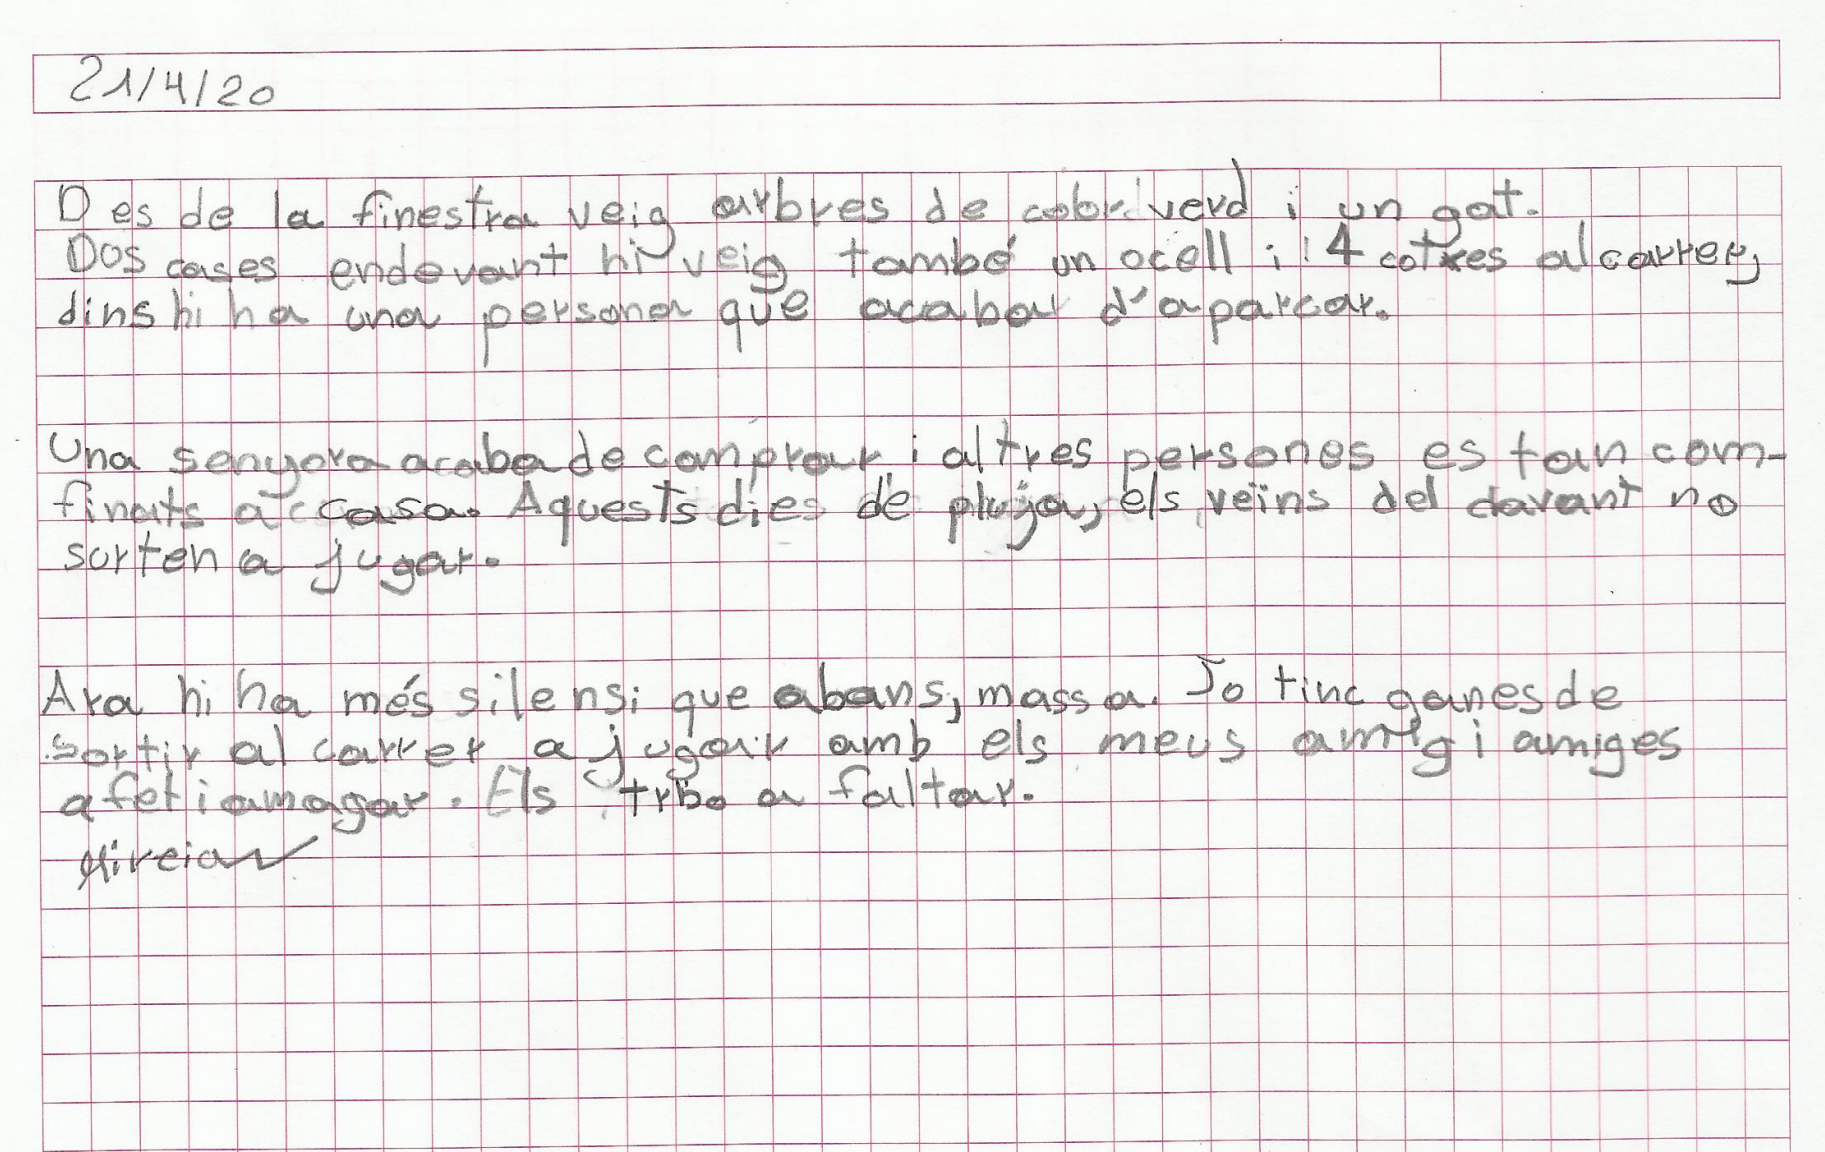 21/4/20
Des de la finestra veig arbres de color verd i un gat.
Dos cases endevant hi veig també un ocell i 4 cotxes al carrer,
dins hi ha una persona que acaba d'aparcar.
Una senyora acaba de comprar i altres persones estan com-
finats a casa. Aquests dies de pluja, els veïns del davant no
surten a jugar.
Ara hi ha més silensi que abans, massa. Jo tinc ganes de
sortir al carrer a jugar amb els meus amig i amiges
a fet i amagar. Els trbo a faltar.
Mireia